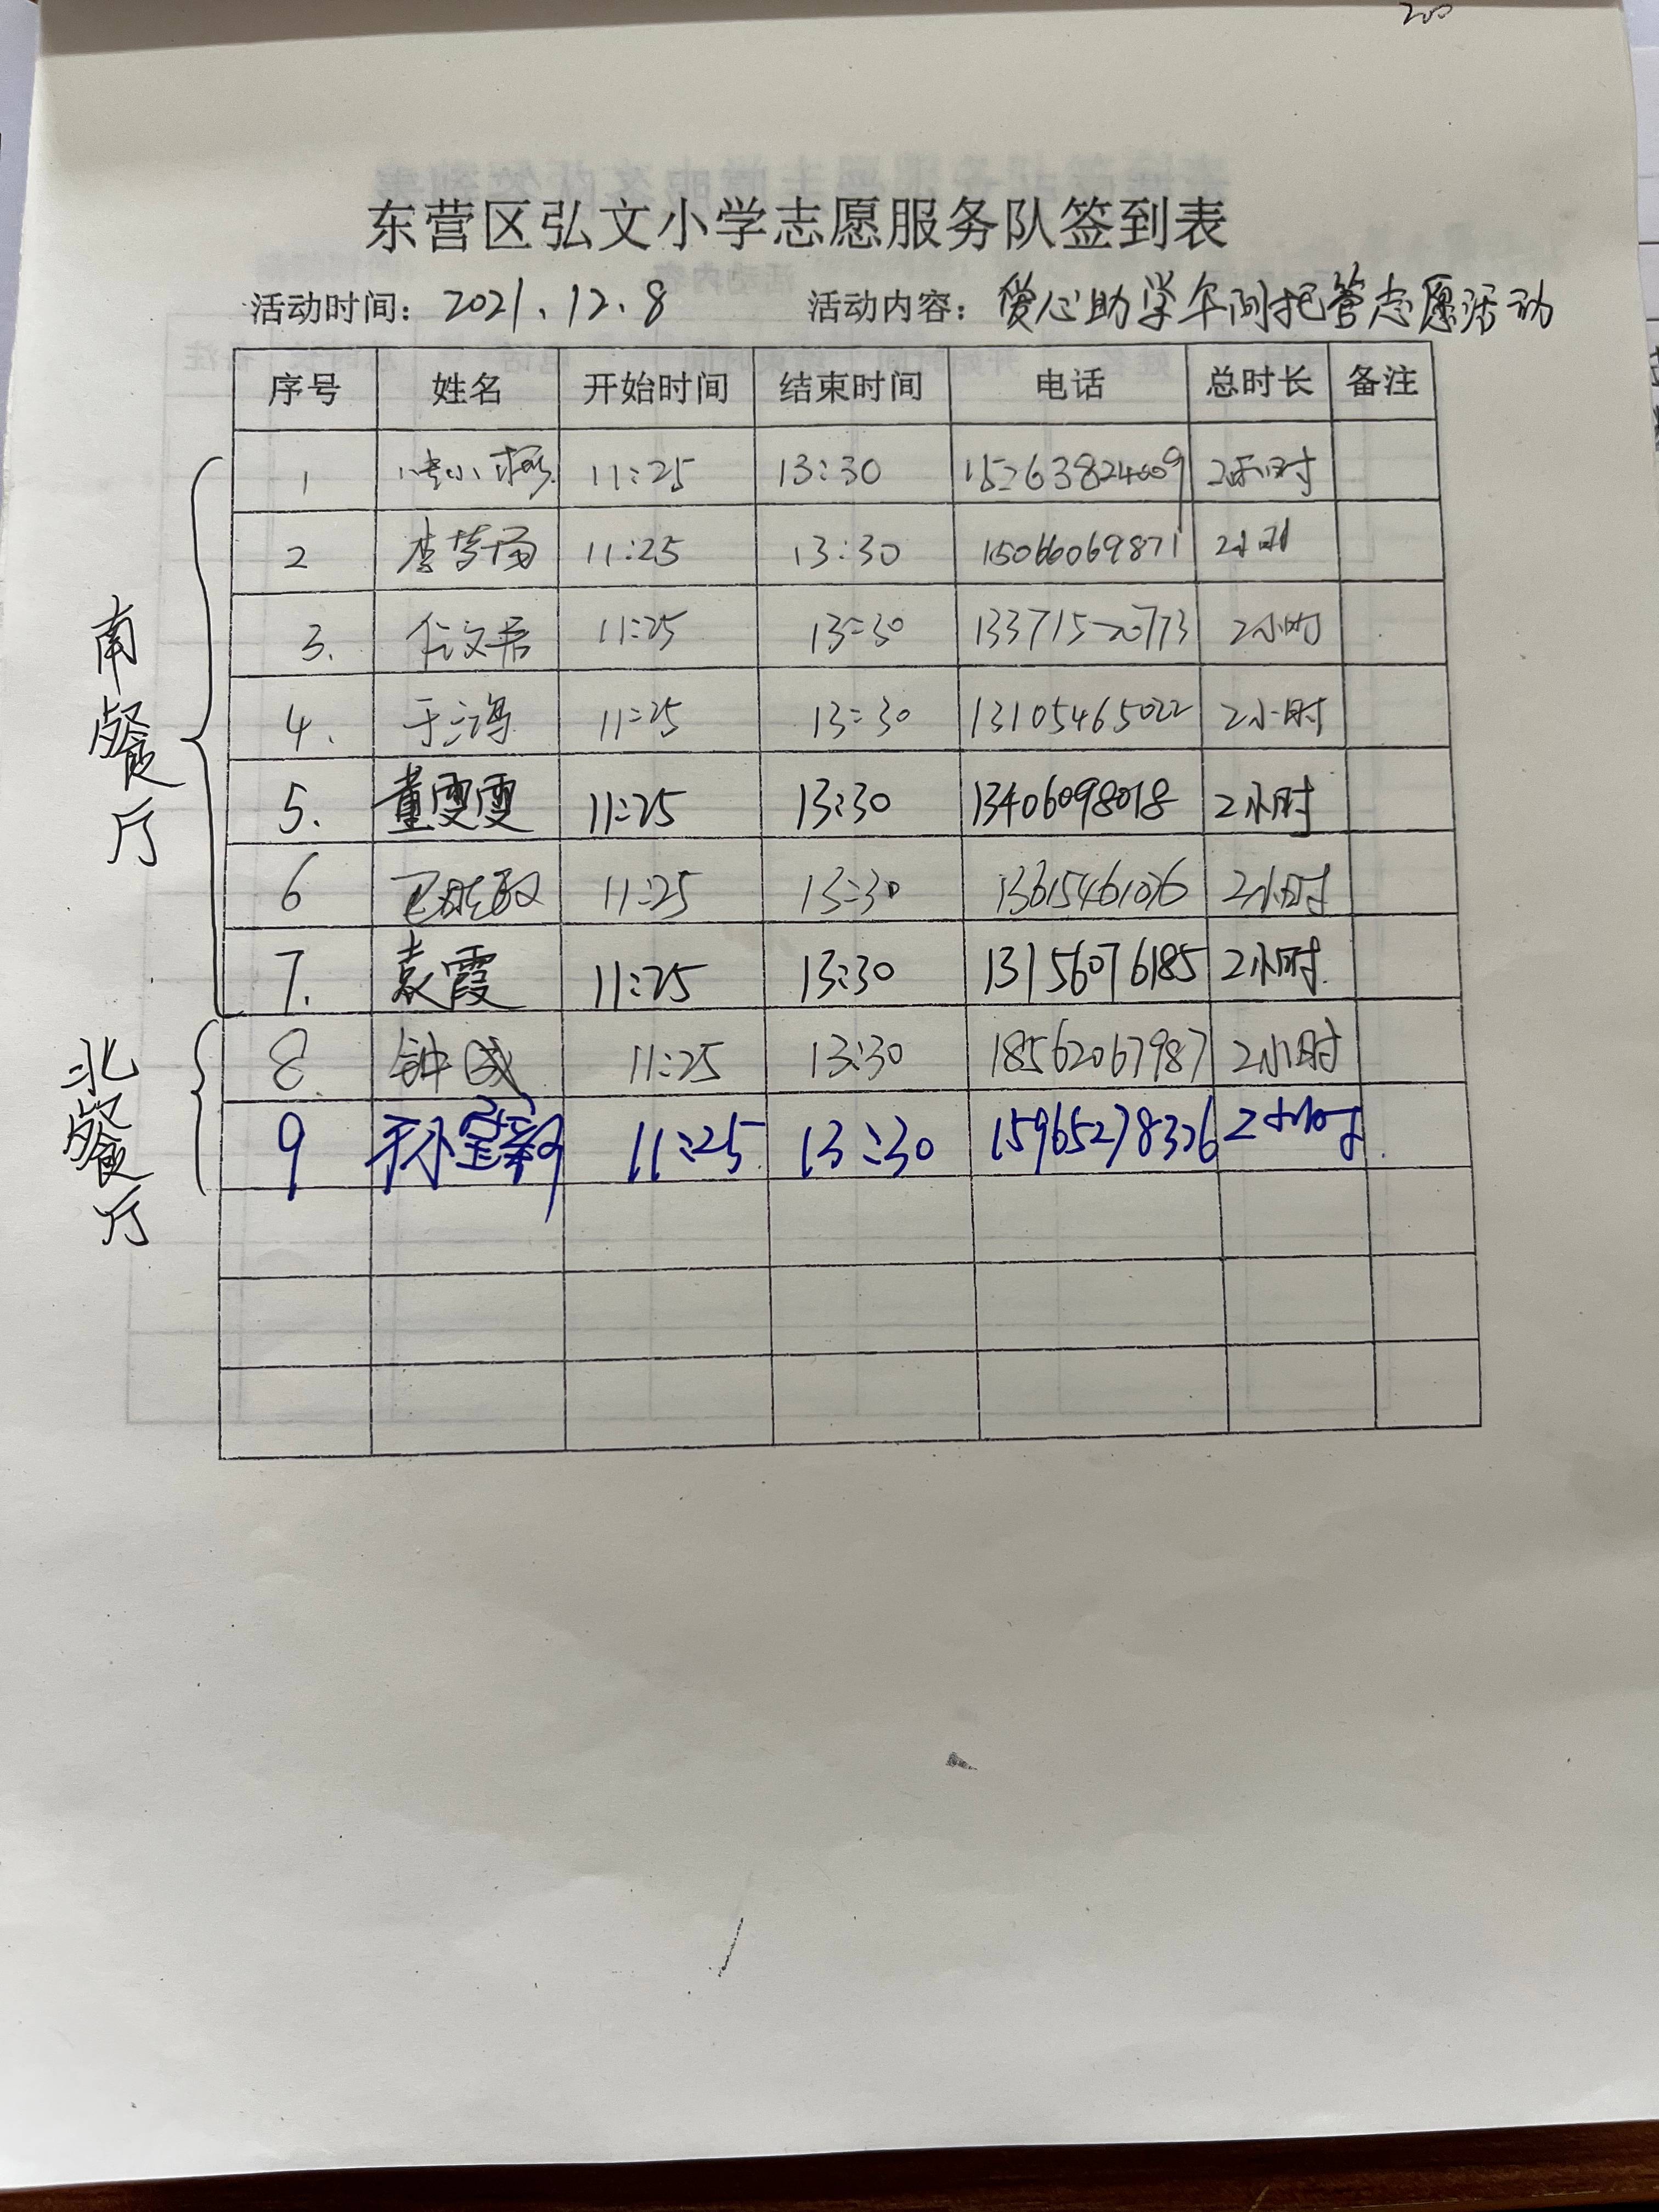 东营区弘文小学志愿服务队签到表
活动时间：2021.12.8 活动内容：爱心助学午间托管志愿活动
序号 姓名 开始时间 结束时间 电话 总时长 备注
南餐厅
1 11:25 13:30 15263824009 2小时
2 11:25 13:30 15066069871 2小时
3. 11:25 13:30 13371520773 2小时
4. 于 11:25 13:30 13105465022 2小时
5. 董雯雯 11:25 13:30 13406098018 2小时
6 11:25 13:30 13615461076 2小时
7. 袁霞 11:25 13:30 13156076185 2小时
北餐厅
8 钟 11:25 13:30 18562067987 2小时
9 11:25 13:30 15965278326 2小时